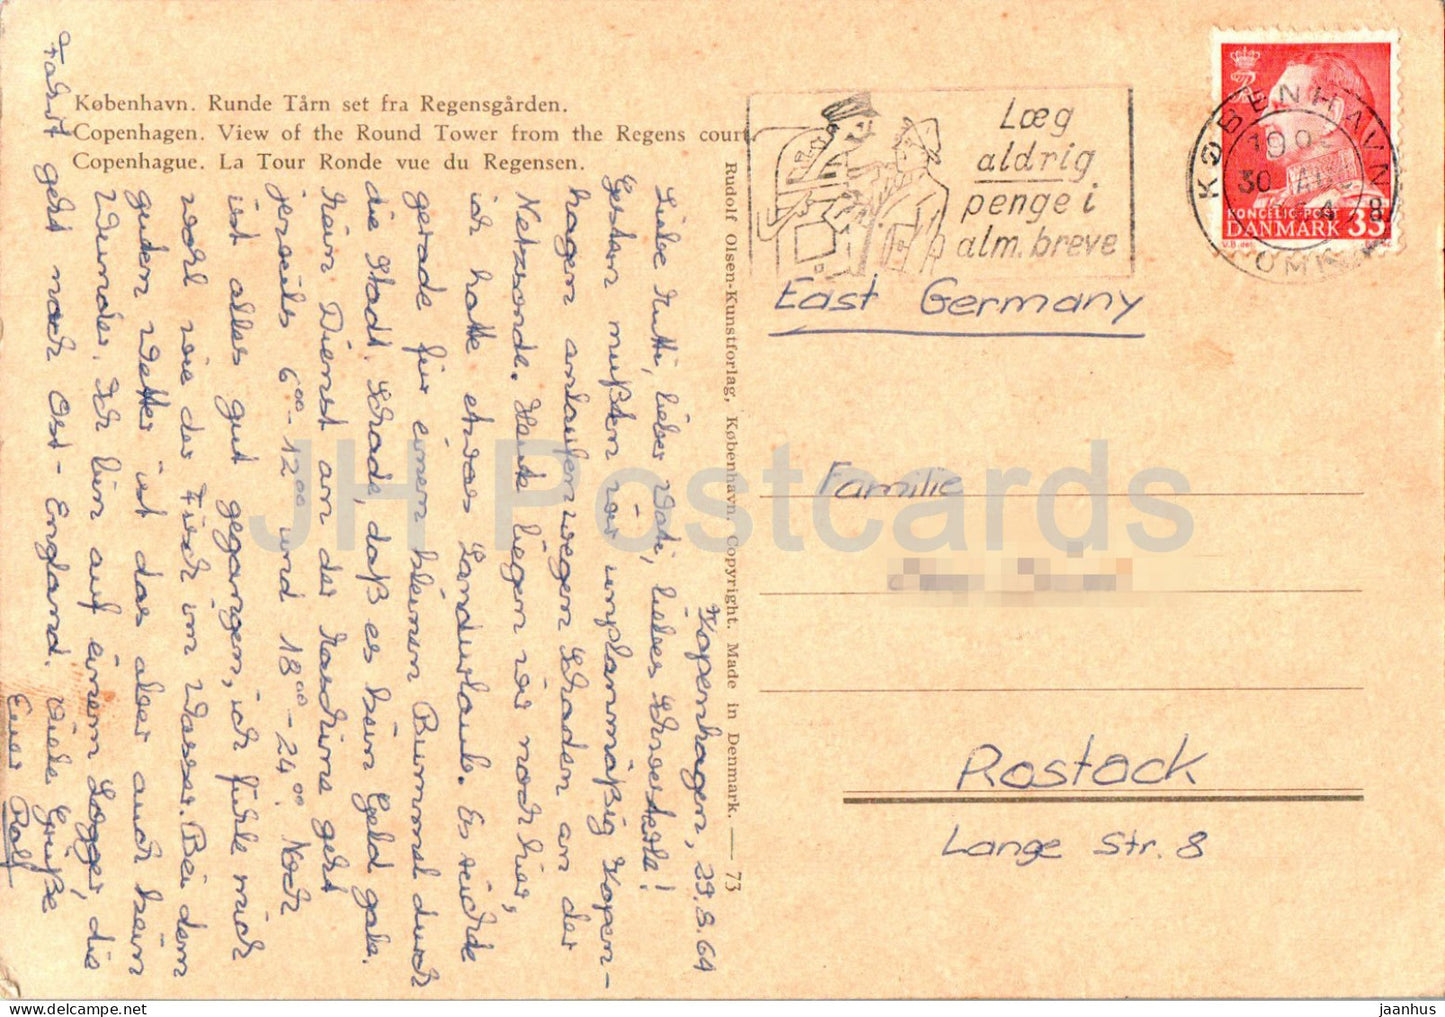 København. Runde Tårn set fra Regensgården.
Copenhagen. View of the Round Tower from the Regens court
Copenhague. La Tour Ronde vue du Regensen.
Kopenhagen, 29.8.64
Liebe Mutti, lieber Vati, liebes Schwesterle!
Gestern mußten wir unplanmäßig Kopen-
hagen anlaufen wegen Schaden an der
Netzsonde. Heute liegen wir noch hier,
ich hatte etwas Landurlaub. Es reichte
gerade für einen kleinen Bummel durch
die Stadt. Schade, daß es kein Geld gabe.
Mein Dienst an der Maschine geht
jeweils 6⁰⁰-12⁰⁰ und 18⁰⁰-24⁰⁰. Noch
ist alles gut gegangen, ich fühle mich
wohl wie der Fisch im Wasser. Bei dem
guten Wetter ist das aber auch kein
Wunder. Ich bin auf einem Logger, die
Fahrt geht nach Ost-England. Viele Grüße
Euer Ralf
Rudolf Olsen-Kunstforlag, København. Copyright. Made in Denmark. — 73
Læg
aldrig
penge i
alm. breve
KØBENHAVN
30
KONGELIG POST
DANMARK 35
East Germany
Familie
Rostock
Lange Str. 8
JH Postcards
HipPostcard.com
jaanhus